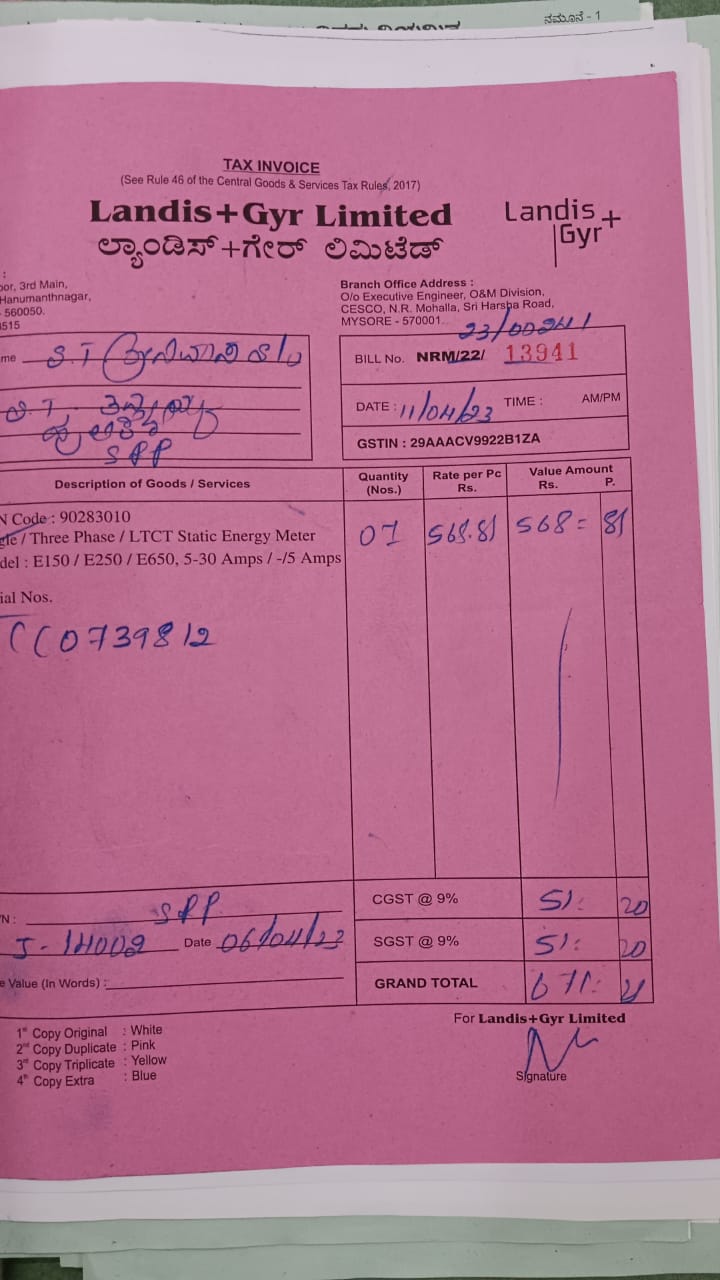 ನಮೂನೆ - 1
TAX INVOICE
(See Rule 46 of the Central Goods & Services Tax Rules, 2017)
Landis+Gyr Limited
Landis+
Gyr
ಲ್ಯಾಂಡಿಸ್+ಗೇರ್ ಲಿಮಿಟೆಡ್
:
oor, 3rd Main,
Hanumanthnagar,
- 560050.
8515
Branch Office Address :
O/o Executive Engineer, O&M Division,
CESCO, N.R. Mohalla, Sri Harsha Road,
MYSORE - 570001.
me
BILL No. NRM/22/ 13941
DATE : 11/04/23 TIME : AM/PM
GSTIN : 29AAACV9922B1ZA
SPP
Description of Goods / Services
Quantity (Nos.)
Rate per Pc Rs.
Value Amount Rs. P.
N Code : 90283010
gle / Three Phase / LTCT Static Energy Meter
del : E150 / E250 / E650, 5-30 Amps / -/5 Amps
01 568.81 568= 81
ial Nos.
CC0739812
CGST @ 9% 51: 20
N : SPP
J-14002 Date 06/04/23
SGST @ 9% 51: 20
e Value (In Words) :
GRAND TOTAL 671: 21
1st Copy Original : White
2nd Copy Duplicate : Pink
3rd Copy Triplicate : Yellow
4th Copy Extra : Blue
For Landis+Gyr Limited
Signature